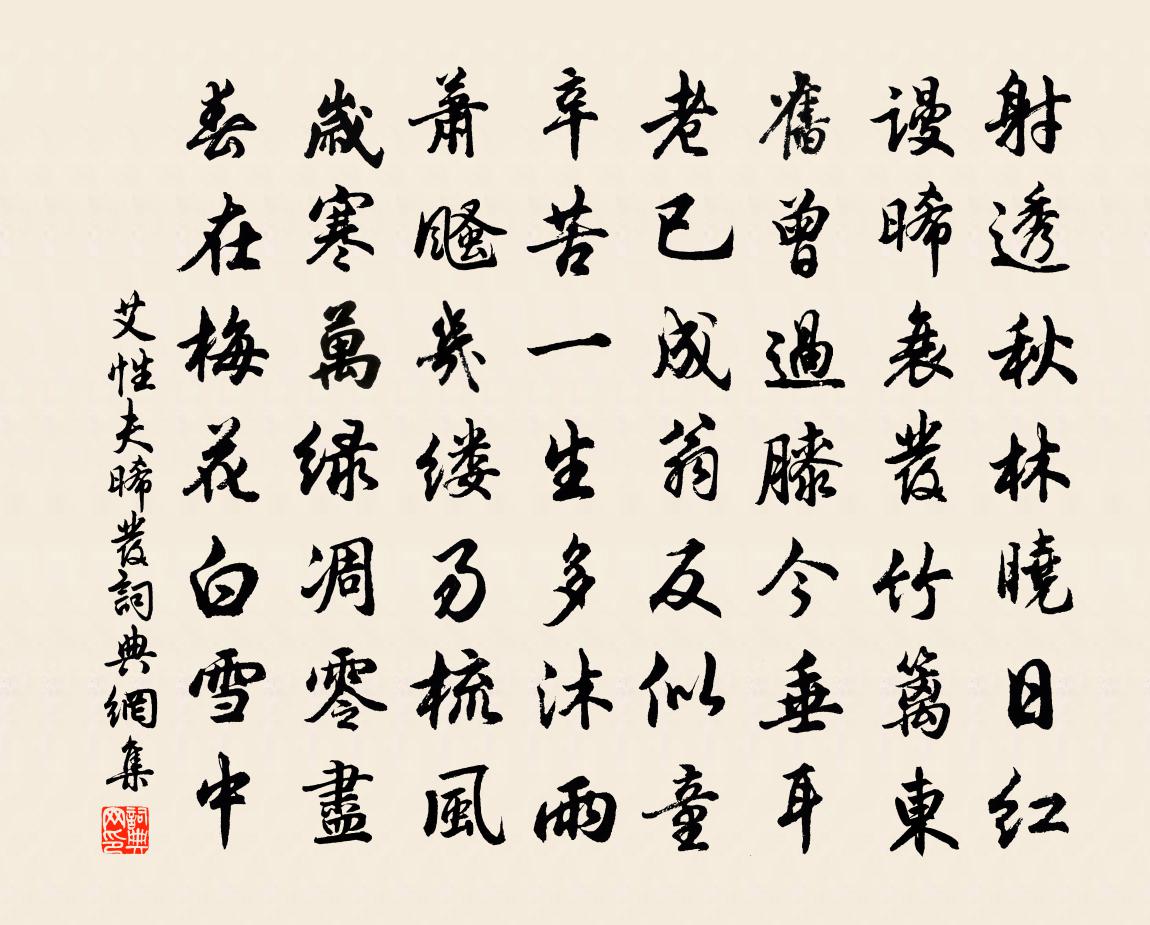 射透秋林曉日紅
謾晞衰發竹籬東
舊曾過膝今垂耳
老已成翁反似童
辛苦一生多沐雨
蕭騷幾縷另梳風
歲寒萬綠凋零盡
春在梅花白雪中
艾性夫晞發詞典網集
詞典網印